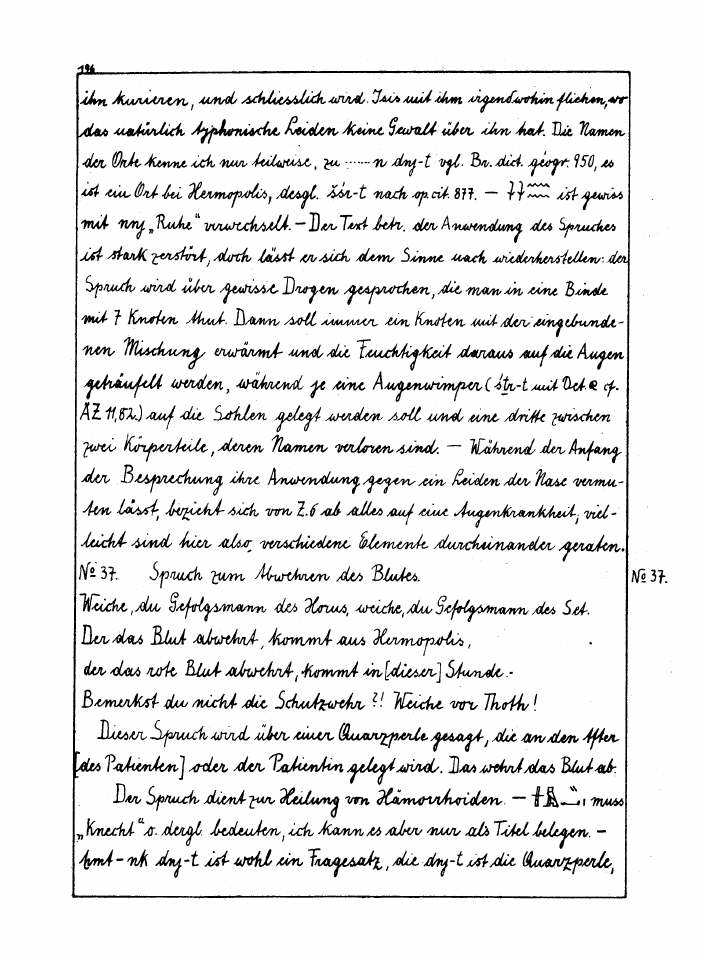 196
ihn kurieren, und schliesslich wird Isis mit ihm irgendwohin fliehen, wo
das natürlich typhonische Leiden keine Gewalt über ihn hat. Die Namen
der Orte kenne ich nur teilweise, zu ······n dnj-t vgl. Br. dict. géogr. 950, es
ist ein Ort bei Hermopolis, desgl. šśr-t nach op. cit. 877. — ist gewiss
mit nnj „Ruhe“ verwechselt. — Der Text betr. der Anwendung des Spruches
ist stark zerstört, doch lässt er sich dem Sinne nach wiederherstellen: der
Spruch wird über gewisse Drogen gesprochen, die man in eine Binde
mit 7 Knoten thut. Dann soll immer ein Knoten mit der eingebunde-
nen Mischung erwärmt und die Feuchtigkeit daraus auf die Augen
geträufelt werden, während je eine Augenwimper ( mit Det. cf.
ÄZ 11,82.) auf die Sohlen gelegt werden soll und eine dritte zwischen
zwei Körperteile, deren Namen verloren sind. — Während der Anfang
der Besprechung ihre Anwendung gegen ein Leiden der Nase vermu-
ten lässt, bezieht sich von Z.6 ab alles auf eine Augenkrankheit; viel-
leicht sind hier also verschiedene Elemente durcheinander geraten.
No 37. Spruch zum Abwehren des Blutes. No 37.
Weiche, du Gefolgsmann des Horus, weiche, du Gefolgsmann des Set.
Der das Blut abwehrt, kommt aus Hermopolis,
der das rote Blut abwehrt, kommt in [dieser] Stunde.-
Bemerkst du nicht die Schutzwehr ?! Weiche vor Thoth!
Dieser Spruch wird über einer Quarzperle gesagt, die an den After
[des Patienten] oder der Patientin gelegt wird. Das wehrt das Blut ab.
Der Spruch dient zur Heilung von Hämorrhoiden. — muss
„Knecht“ o. dergl. bedeuten, ich kann es aber nur als Titel belegen. –
ḫmt-nk dnj-t ist wohl ein Fragesatz, die dnj-t ist die Quarzperle,